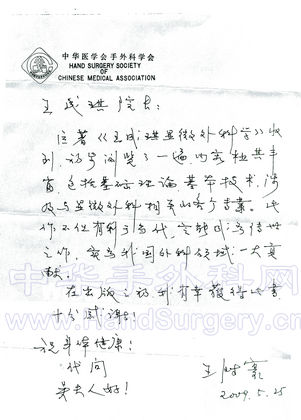 中华医学会手外科学会
HAND SURGERY SOCIETY
OF
CHINESE MEDICAL ASSOCIATION
王成琪院长:
位著《王成琪显微外科学》收
到,初步浏览了一遍,内容极其丰
富,包括基础理论基本技术,涉
及与显微外科相关的各个方面。此
作不但有利于当代,实能成为传世
之作,实为我国外科领域一大贡
献。
在出版之初我有幸获得此书
十分感谢!
祝身体健康!
代问
夫人好!
王澍寰
2009.5.25
中华手外科网
www.HandSurgery.cn